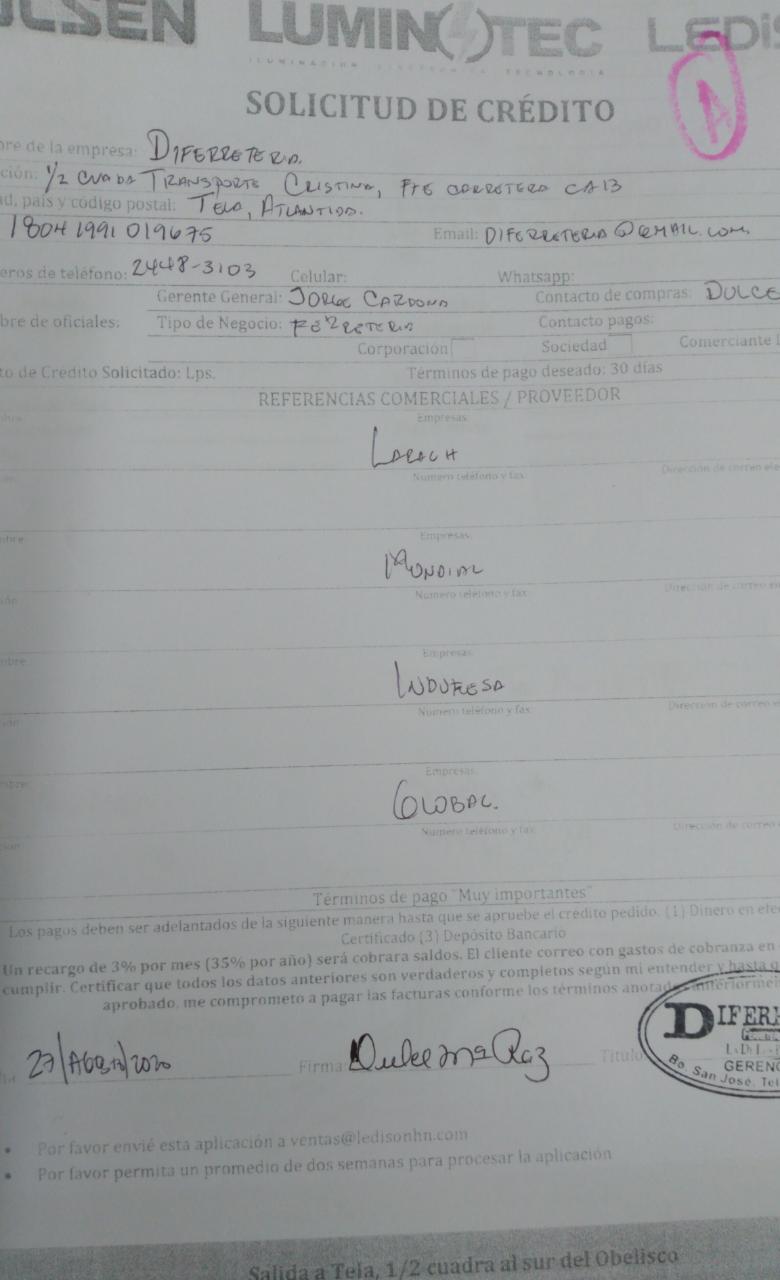 LUMINOTEC LEDIS
ILUMINACION ELECTRONICA TECNOLOGIA
SOLICITUD DE CRÉDITO
A
re de la empresa: DIFERRETERIA.
ción: 1/2 CUADA TRANSPORTE CRISTINA, FTE CARRETERA CA13
d, país y código postal: TELA, ATLANTIDA.
18041991019675 Email: DIFERRETERIA@GMAIL.COM
eros de teléfono: 2448-3103 Celular: Whatsapp:
Gerente General: JORGE CARDONA Contacto de compras: DULCE
bre de oficiales: Tipo de Negocio: FERRETERIA Contacto pagos:
Corporación Sociedad Comerciante
to de Crédito Solicitado: Lps. Términos de pago deseado: 30 días
REFERENCIAS COMERCIALES / PROVEEDOR
Empresas
LARACH
Numero teléfono y fax Dirección de correo ele
mbre Empresas
MUNDIAL
ión Numero teléfono y fax Dirección de correo
mbre Empresas
INDUFESA
Numero teléfono y fax Dirección de correo e
mbre Empresas
GLOBAL.
Numero teléfono y fax Dirección de correo
Términos de pago "Muy importantes"
Los pagos deben ser adelantados de la siguiente manera hasta que se apruebe el crédito pedido. (1) Dinero en efe
Certificado (3) Depósito Bancario
Un recargo de 3% por mes (35% por año) será cobrara saldos. El cliente correo con gastos de cobranza en
cumplir. Certificar que todos los datos anteriores son verdaderos y completos según mi entender y hasta q
aprobado, me comprometo a pagar las facturas conforme los términos anotados anteriormen
DIFERR
27/AGOSTO/2020 Firma Dulce Mª Paz Titulo
GERENC
Bo. San José, Tel
• Por favor envié esta aplicación a ventas@ledisonhn.com
• Por favor permita un promedio de dos semanas para procesar la aplicación
Salida a Tela, 1/2 cuadra al sur del Obelisco